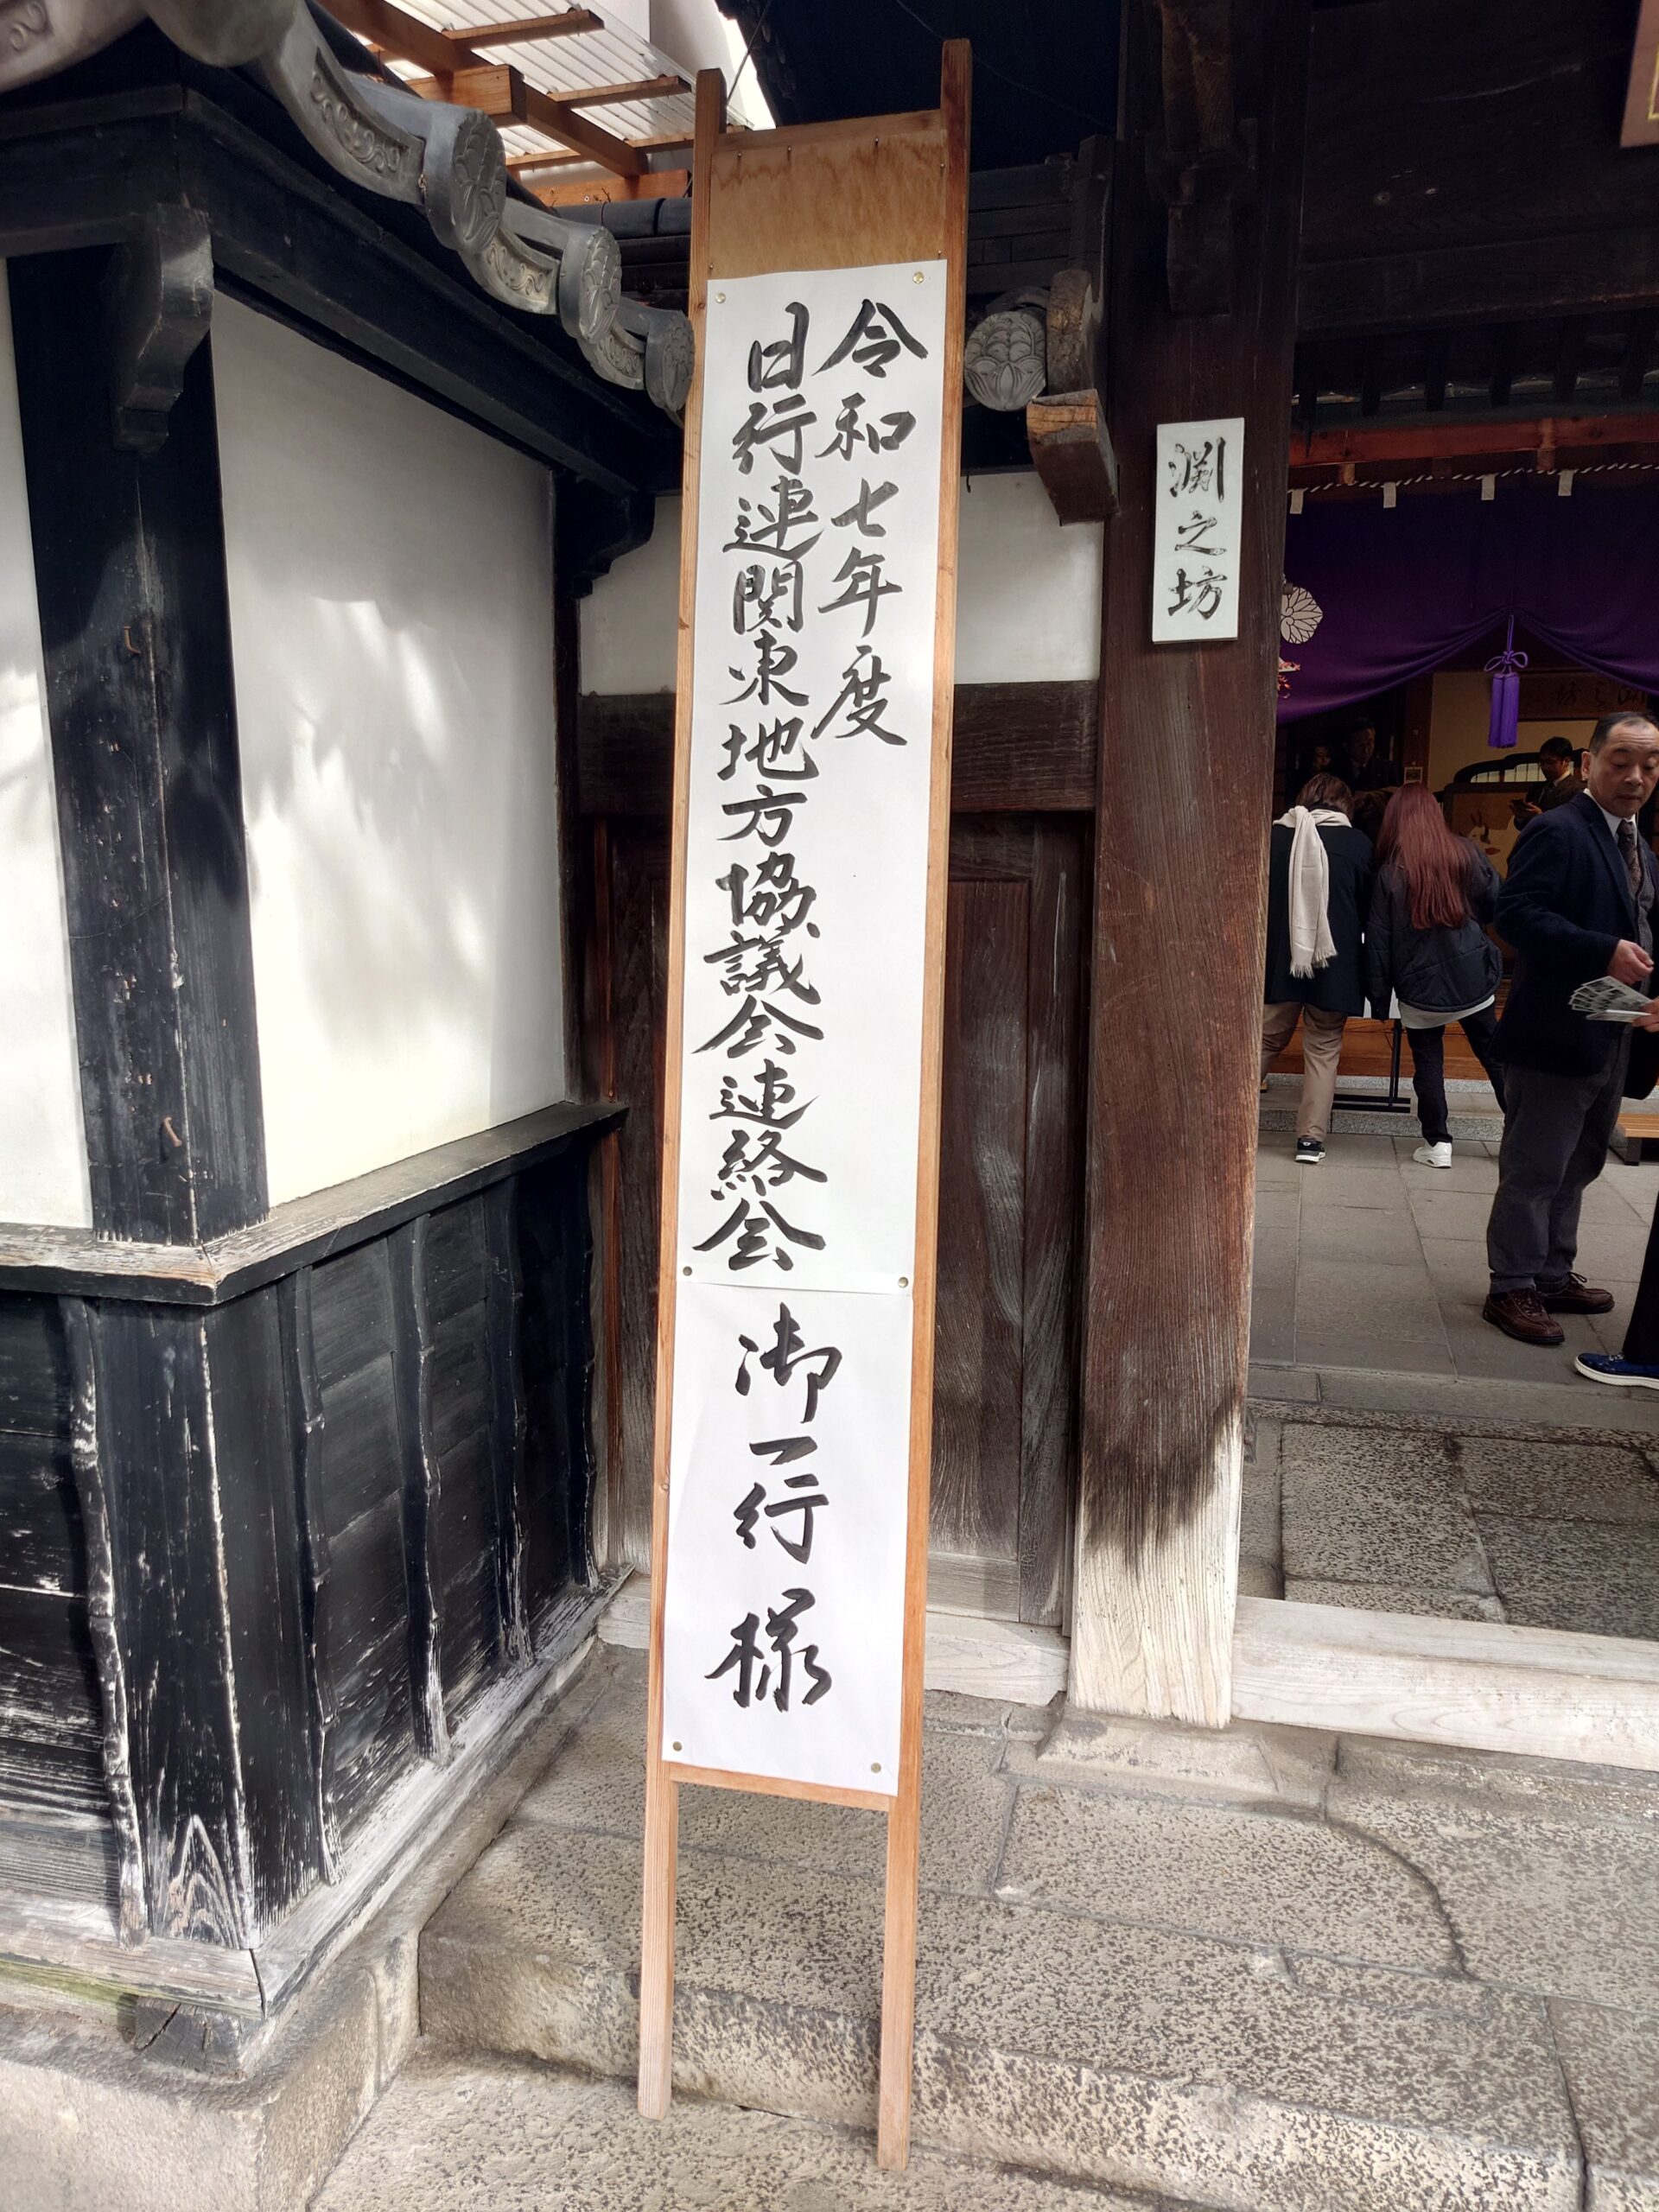 令和七年度
日行連関東地方協議会連絡会
御一行様
渕之坊